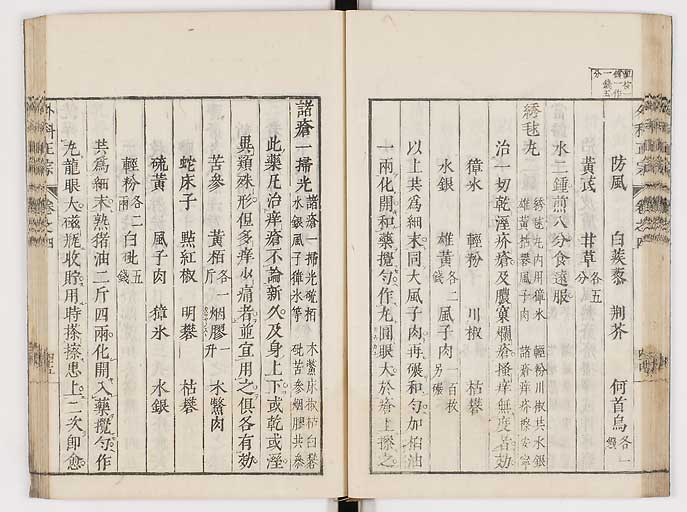 防風 白蒺藜 荆芥 何首烏各一錢
黃茋 甘草各五分
水二鍾煎八分食遠服
綉毬丸 綉毬丸內用樟氷 輕粉川椒共水銀 雄黃枯礬風子肉 諸瘡痒疥擦安寧
治一切乾溼疥瘡及膿窠爛瘡搔痒無度者効
樟氷 輕粉 川椒 枯礬
水銀 雄黃各二錢 風子肉一百枚另碾
以上共爲細末同大風子肉再碾和勻加桕油
一兩化開和藥攪勻作丸圓眼大於瘡上擦之
諸瘡一掃光 諸瘡一掃光硫栢 木鱉床椒枯白礬 水銀風子樟氷等 砒苦參烟膠共叅
此藥凡治痒瘡不論新久及身上下或乾或溼
異類殊形但多痒少痛者並宜用之俱各有効
苦參 黃栢各一斤 烟膠一升 木鱉肉
蛇床子 點紅椒 明礬 枯礬
硫黃 風子肉 樟氷 水銀
輕粉各二兩 白砒五錢
共爲細末熟猪油二斤四兩化開入藥攪勻作
丸龍眼大磁瓶收貯用時搽擦患上二次即愈
外科正宗 卷之四